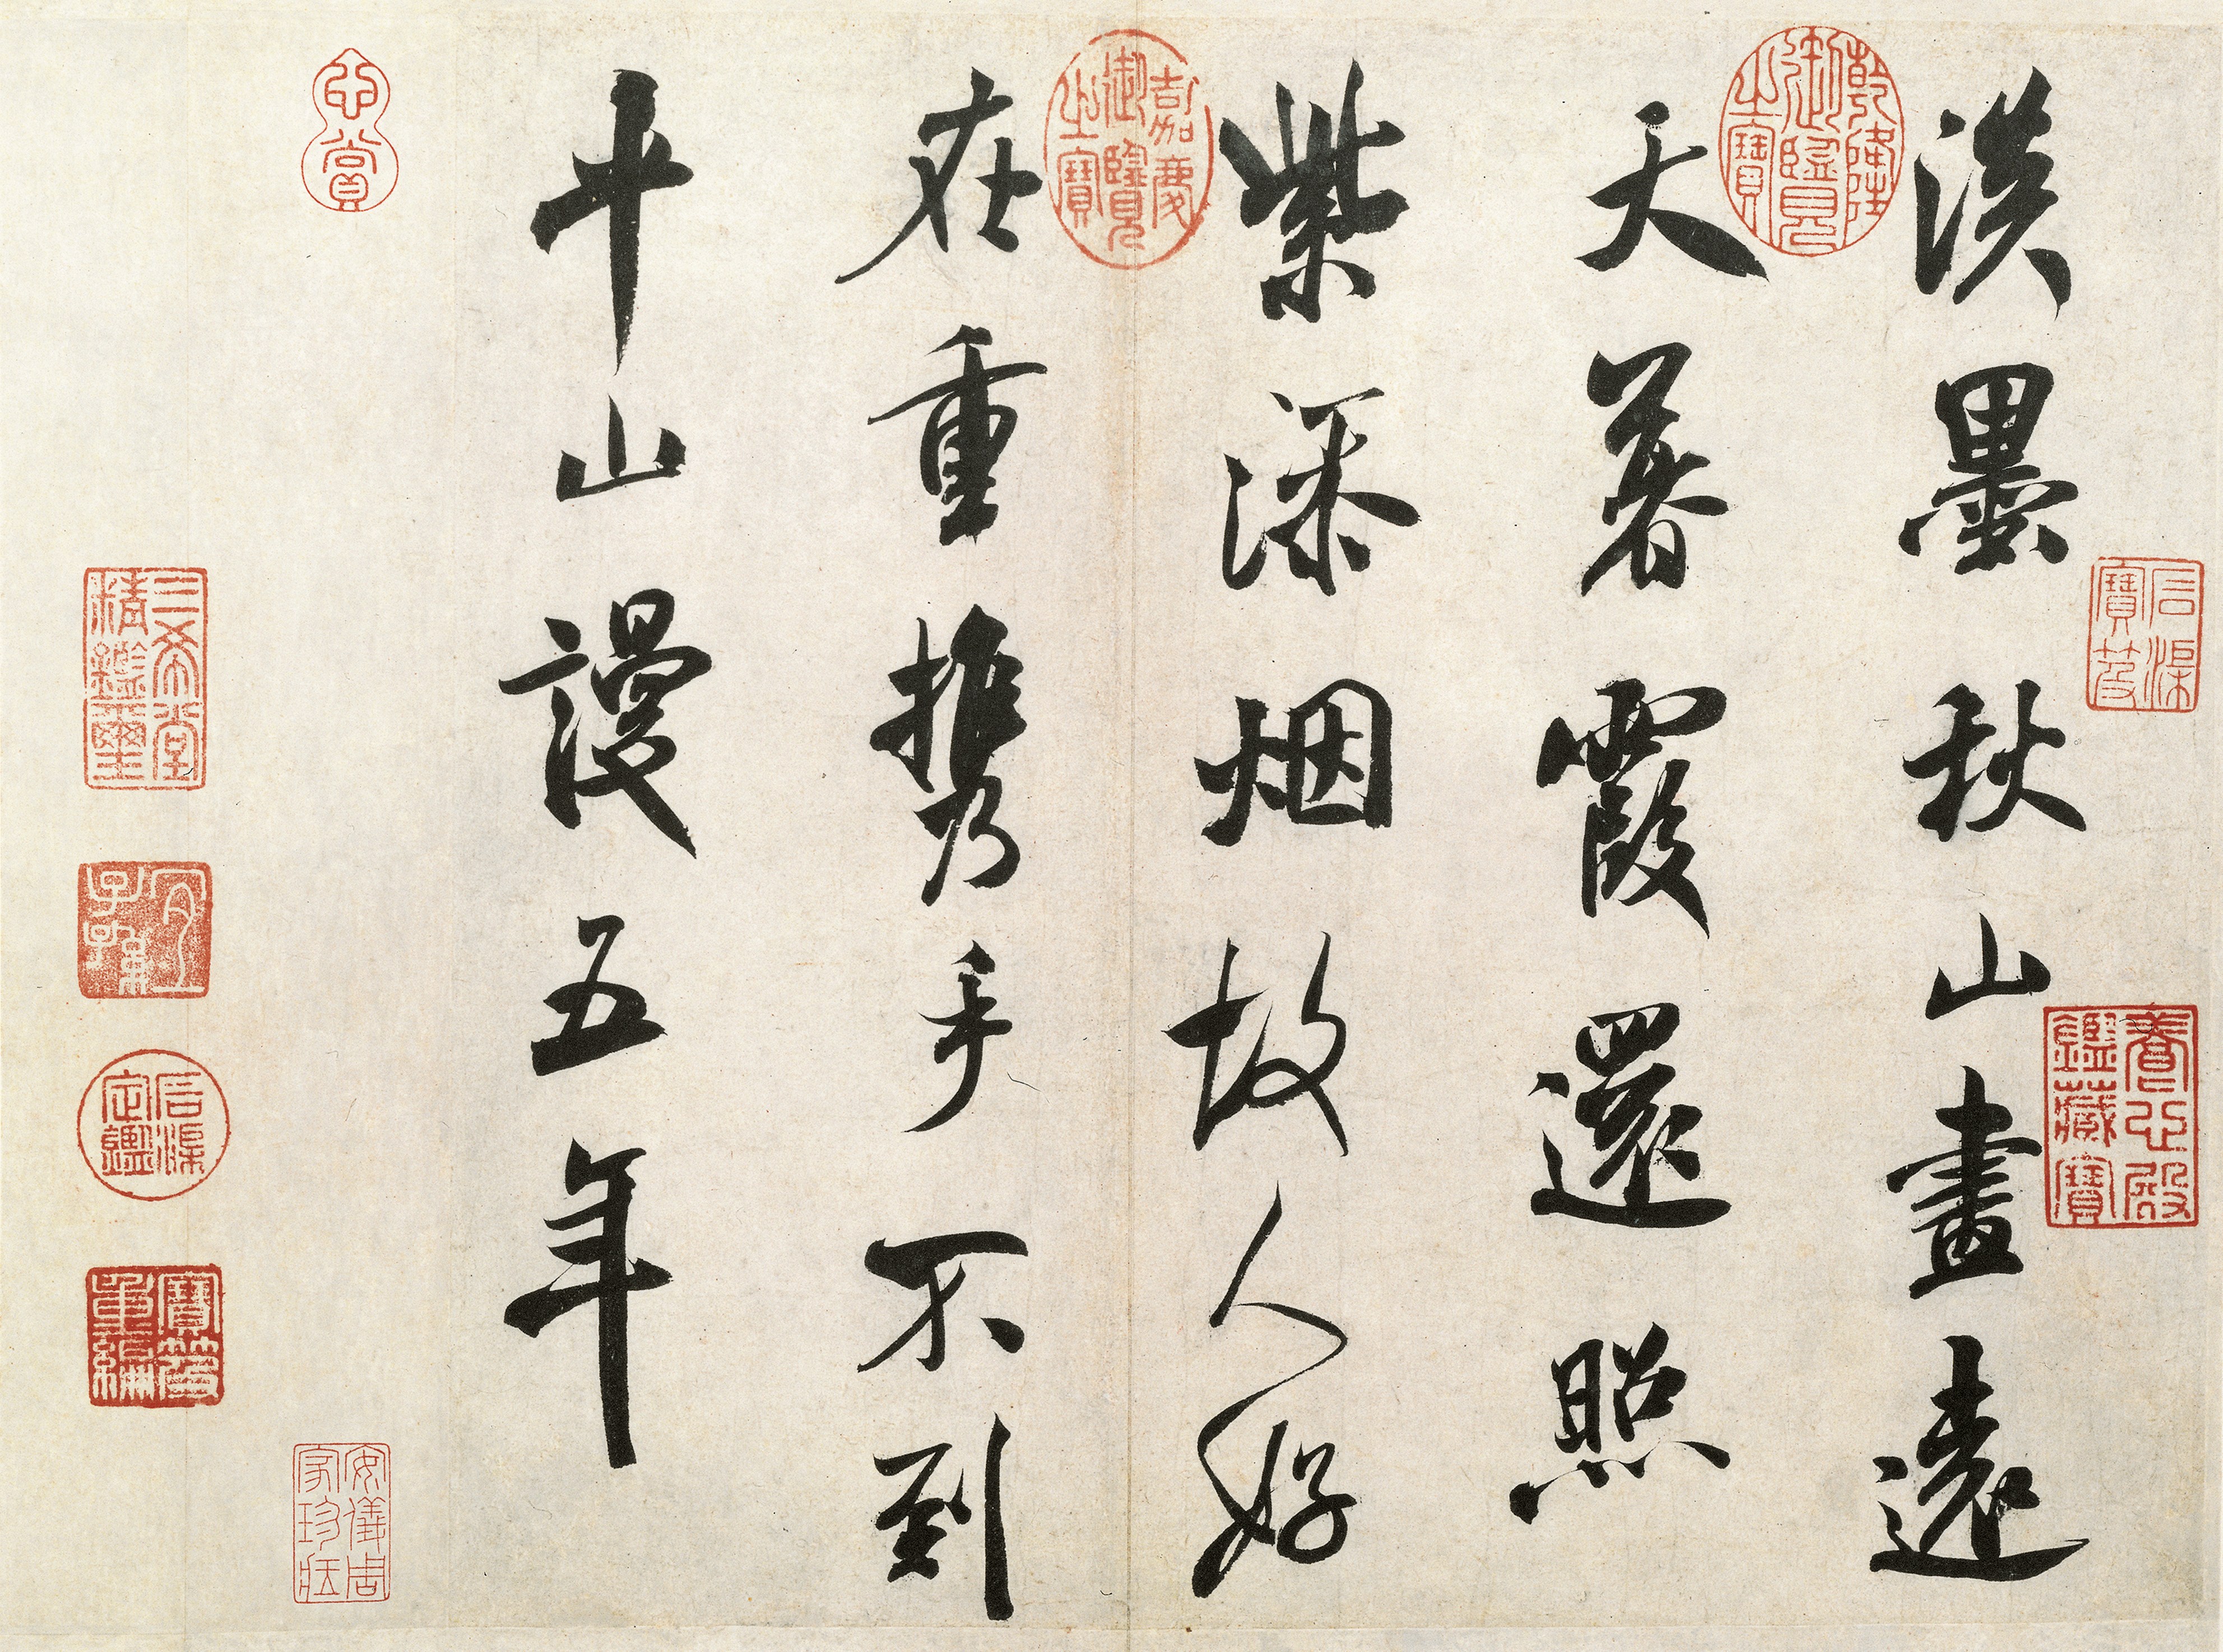 石渠寶笈
養心殿鑑藏寶
淡墨秋山畫遠
乾隆御覽之寶
天暮霞還照
紫添烟故人好
嘉慶御覽之寶
在重携手不到
平山謾五年
心賞
安儀周家珍藏
三希堂精鑑璽
宜子孫
石渠定鑑
寶笈重編